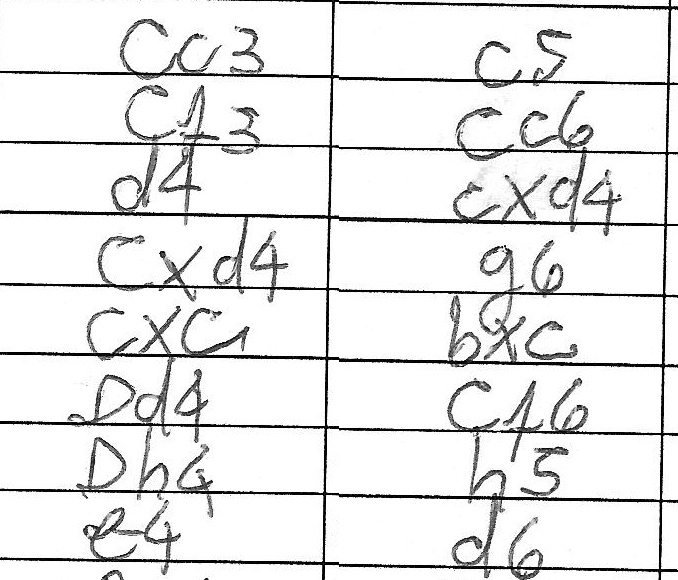 Cc3 c5
Cf3 Cc6
d4 cxd4
Cxd4 g6
CxC bxc
Dd4 Cf6
Dh4 h5
e4 d6